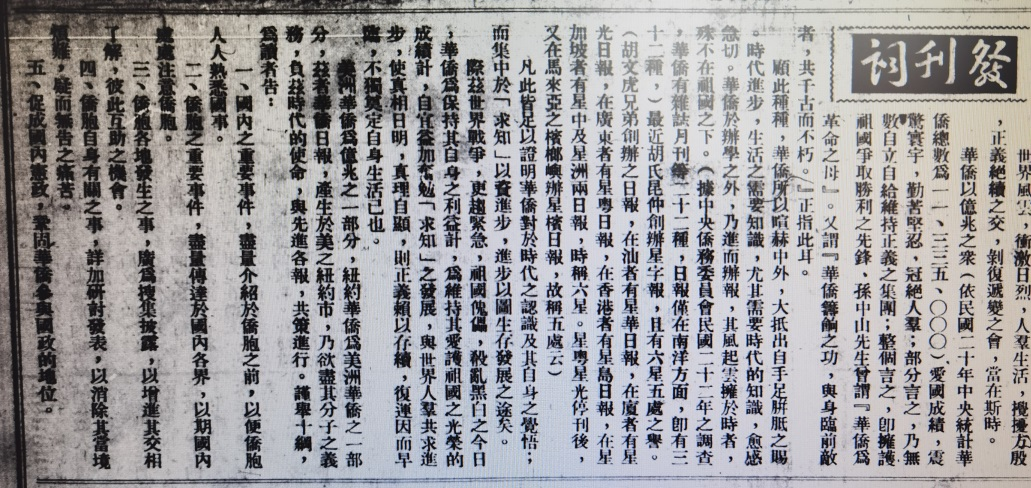 發刊詞
世界風雲,衝激日烈,人羣生活,擾攘方殷
,正義絕續之交,剝復遞變之會,當在斯時。
華僑以億兆之衆(依民國二十年中央統計華
僑總數爲一一、三三五、〇〇〇)愛國成績,震
驚寰宇,勤苦堅忍,冠絕人羣;部分言之,乃無
數自立自給維持正義之集團;整個言之,卽擁護
祖國爭取勝利之先鋒、孫中山先生曾謂『華僑爲
革命之母』。又謂『華僑籌餉之功,與身臨前敵
者,共千古而不朽。』正指此耳。
顧此種種,華僑所以喧赫中外,大抵出自手足胼胝之賜
。時代進步,生活之需要知識,尤其需要時代的知識,愈感
急切。華僑於辦學之外,乃進而辦報,其風起雲擁於時者,
殊不在祖國之下。(據中央僑務委員會民國二十二年之調查
,華僑有雜誌月刊等二十二種,日報僅在南洋方面,卽有三
十二種,)最近胡氏昆仲創辦星字報,且有六星五處之譽。
(胡文虎兄弟創辦之日報,在汕者有星華日報,在廈者有星
光日報,在廣東者有星粵日報,在香港者有星島日報,在星
加坡者有星中及星洲兩日報,時稱六星。星粵星光停刊後,
又在馬來亞之檳榔嶼辦星檳日報,故稱五處。)
凡此皆足以證明華僑對於時代之認識及其自身之覺悟;
而集中於「求知」以資進步,進步以圖生存發展之途矣。
際茲世界戰爭,更趨緊急,祖國傀儡,殺亂黑白之今日
,華僑爲保持其自身之利益計,爲維持其愛護祖國之光榮的
成績計,自宜益加奮勉「求知」之發展,與世界人羣共求進
步,使真相日明,真理自顯,則正義賴以存續,復運因而早
臨,不獨奠定自身生活已也。
美洲華僑爲億兆之一部分,紐約華僑爲美洲華僑之一部
分,茲者華僑日報,產生於美之紐約市,乃欲盡其分子之義
務,負茲時代的使命,與先進各報,共策進行。謹舉十綱,
爲讀者告:
一、國內之重要事件,盡量介紹於僑胞之前,以便僑胞
人人熟悉國事。
二、僑胞之重要事件,盡量傳達於國內各界,以期國內
處處注意僑胞。
三、僑胞各地發生之事,廣爲搜集披露,以增進其交相
了解,彼此互助之機會。
四、僑胞自身有關之事,詳加研討發表,以消除其當境
,疑而無告之痛苦。
五、促成國內憲政,鞏固華僑參與國政的地位。